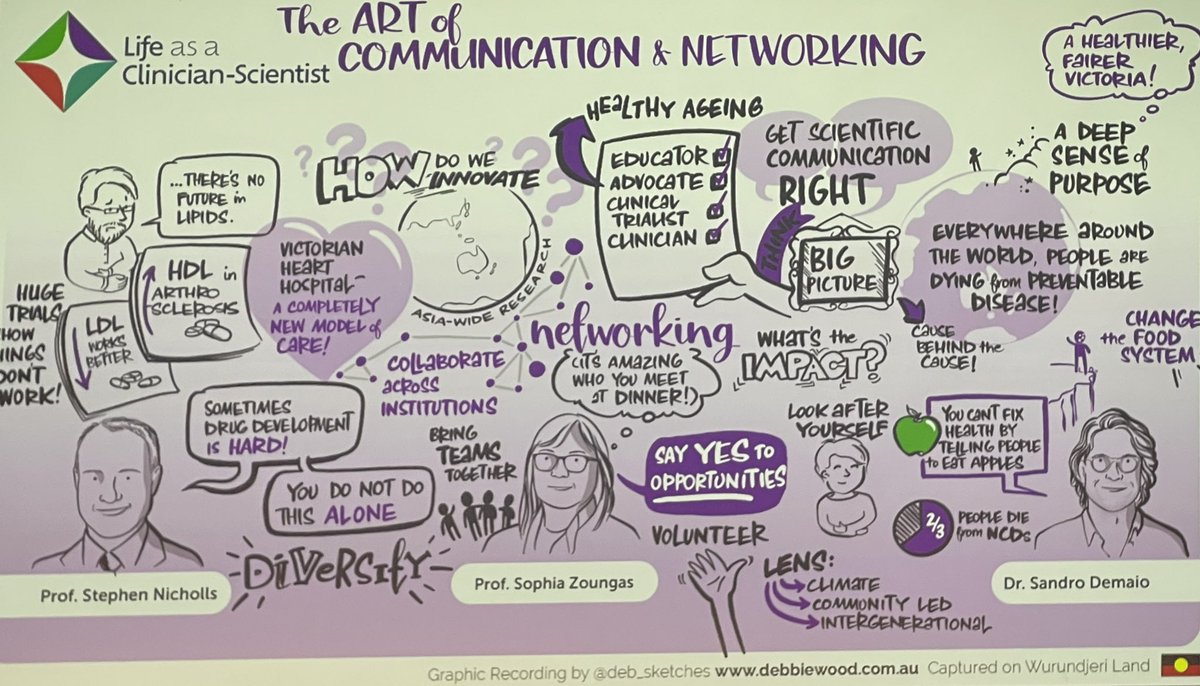 Life as a
Clinician-Scientist
The ART of
COMMUNICATION & NETWORKING
A HEALTHIER,
FAIRER
VICTORIA!
...THERE'S NO
FUTURE in
LIPIDS.
HUGE
TRIALS
HOW
INGS
DON'T
WORK!
HDL in
ARTHRO
SCLEROSIS
LDL
WORKS
BETTER
HOW DO WE
INNOVATE
VICTORIAN
HEART
HOSPITAL-
A COMPLETELY
NEW MODEL of
CARE!
ASIA-WIDE RESEARCH
COLLABORATE
across
INSTITUTIONS
HEALTHY AGEING
EDUCATOR
ADVOCATE
CLINICAL
TRIALIST
CLINICIAN
GET SCIENTIFIC
COMMUNICATION
RIGHT
THINK
BIG
PICTURE
A DEEP
SENSE of
PURPOSE
EVERYWHERE around
THE WORLD, PEOPLE are
DYING from PREVENTABLE
DISEASE!
CAUSE
BEHIND the
CAUSE!
CHANGE
the FOOD
SYSTEM
networking
(IT'S AMAZING
WHO YOU MEET
at DINNER!)
WHAT'S the
IMPACT?
SOMETIMES
DRUG DEVELOPMENT
is HARD!
YOU DO NOT DO
THIS ALONE
DIVERSIFY
BRING
TEAMS
TOGETHER
SAY YES TO
OPPORTUNITIES
VOLUNTEER
LOOK AFTER
YOURSELF
YOU CAN'T FIX
HEALTH BY
TELLING PEOPLE
to EAT APPLES
2/3
PEOPLE DIE
from NCDs
LENS:
CLIMATE
COMMUNITY LED
INTERGENERATIONAL
Prof. Stephen Nicholls
Prof. Sophia Zoungas
Dr. Sandro Demaio
Graphic Recording by @deb_sketches www.debbiewood.com.au Captured on Wurundjeri Land